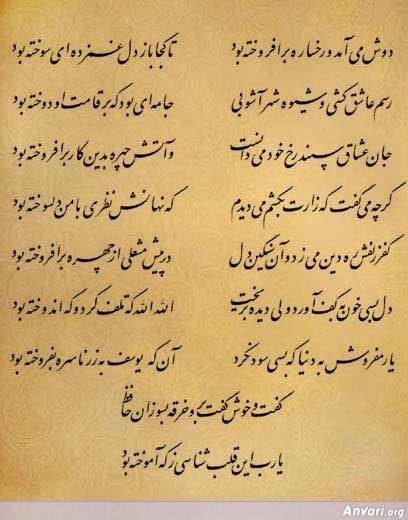 دوش می آمد و رخساره برافروخته بود تا کجا باز دل غمزده ای سوخته بود
رسم عاشق کشی و شیوه شهر آشوبی جامه ای بود که بر قامت او دوخته بود
جان عشاق سپند رخ خود می دانست و آتش چهره بدین کار برافروخته بود
گرچه می گفت که زارت بکشم می دیدم که نهانش نظری با من دلسوخته بود
کفر زلفش ره دین می زد و آن سنگین دل در پیش مشعلی از چهره برافروخته بود
دل بسی خون به کف آورد ولی دیده بریخت الله الله که تلف کرد و که اندوخته بود
یار مفروش به دنیا که بسی سود نکرد آن که یوسف به زر ناسره بفروخته بود
گفت و خوش گفت برو خرقه بسوزان حافظ
یارب این قلب شناسی ز که آموخته بود
Anvari.org